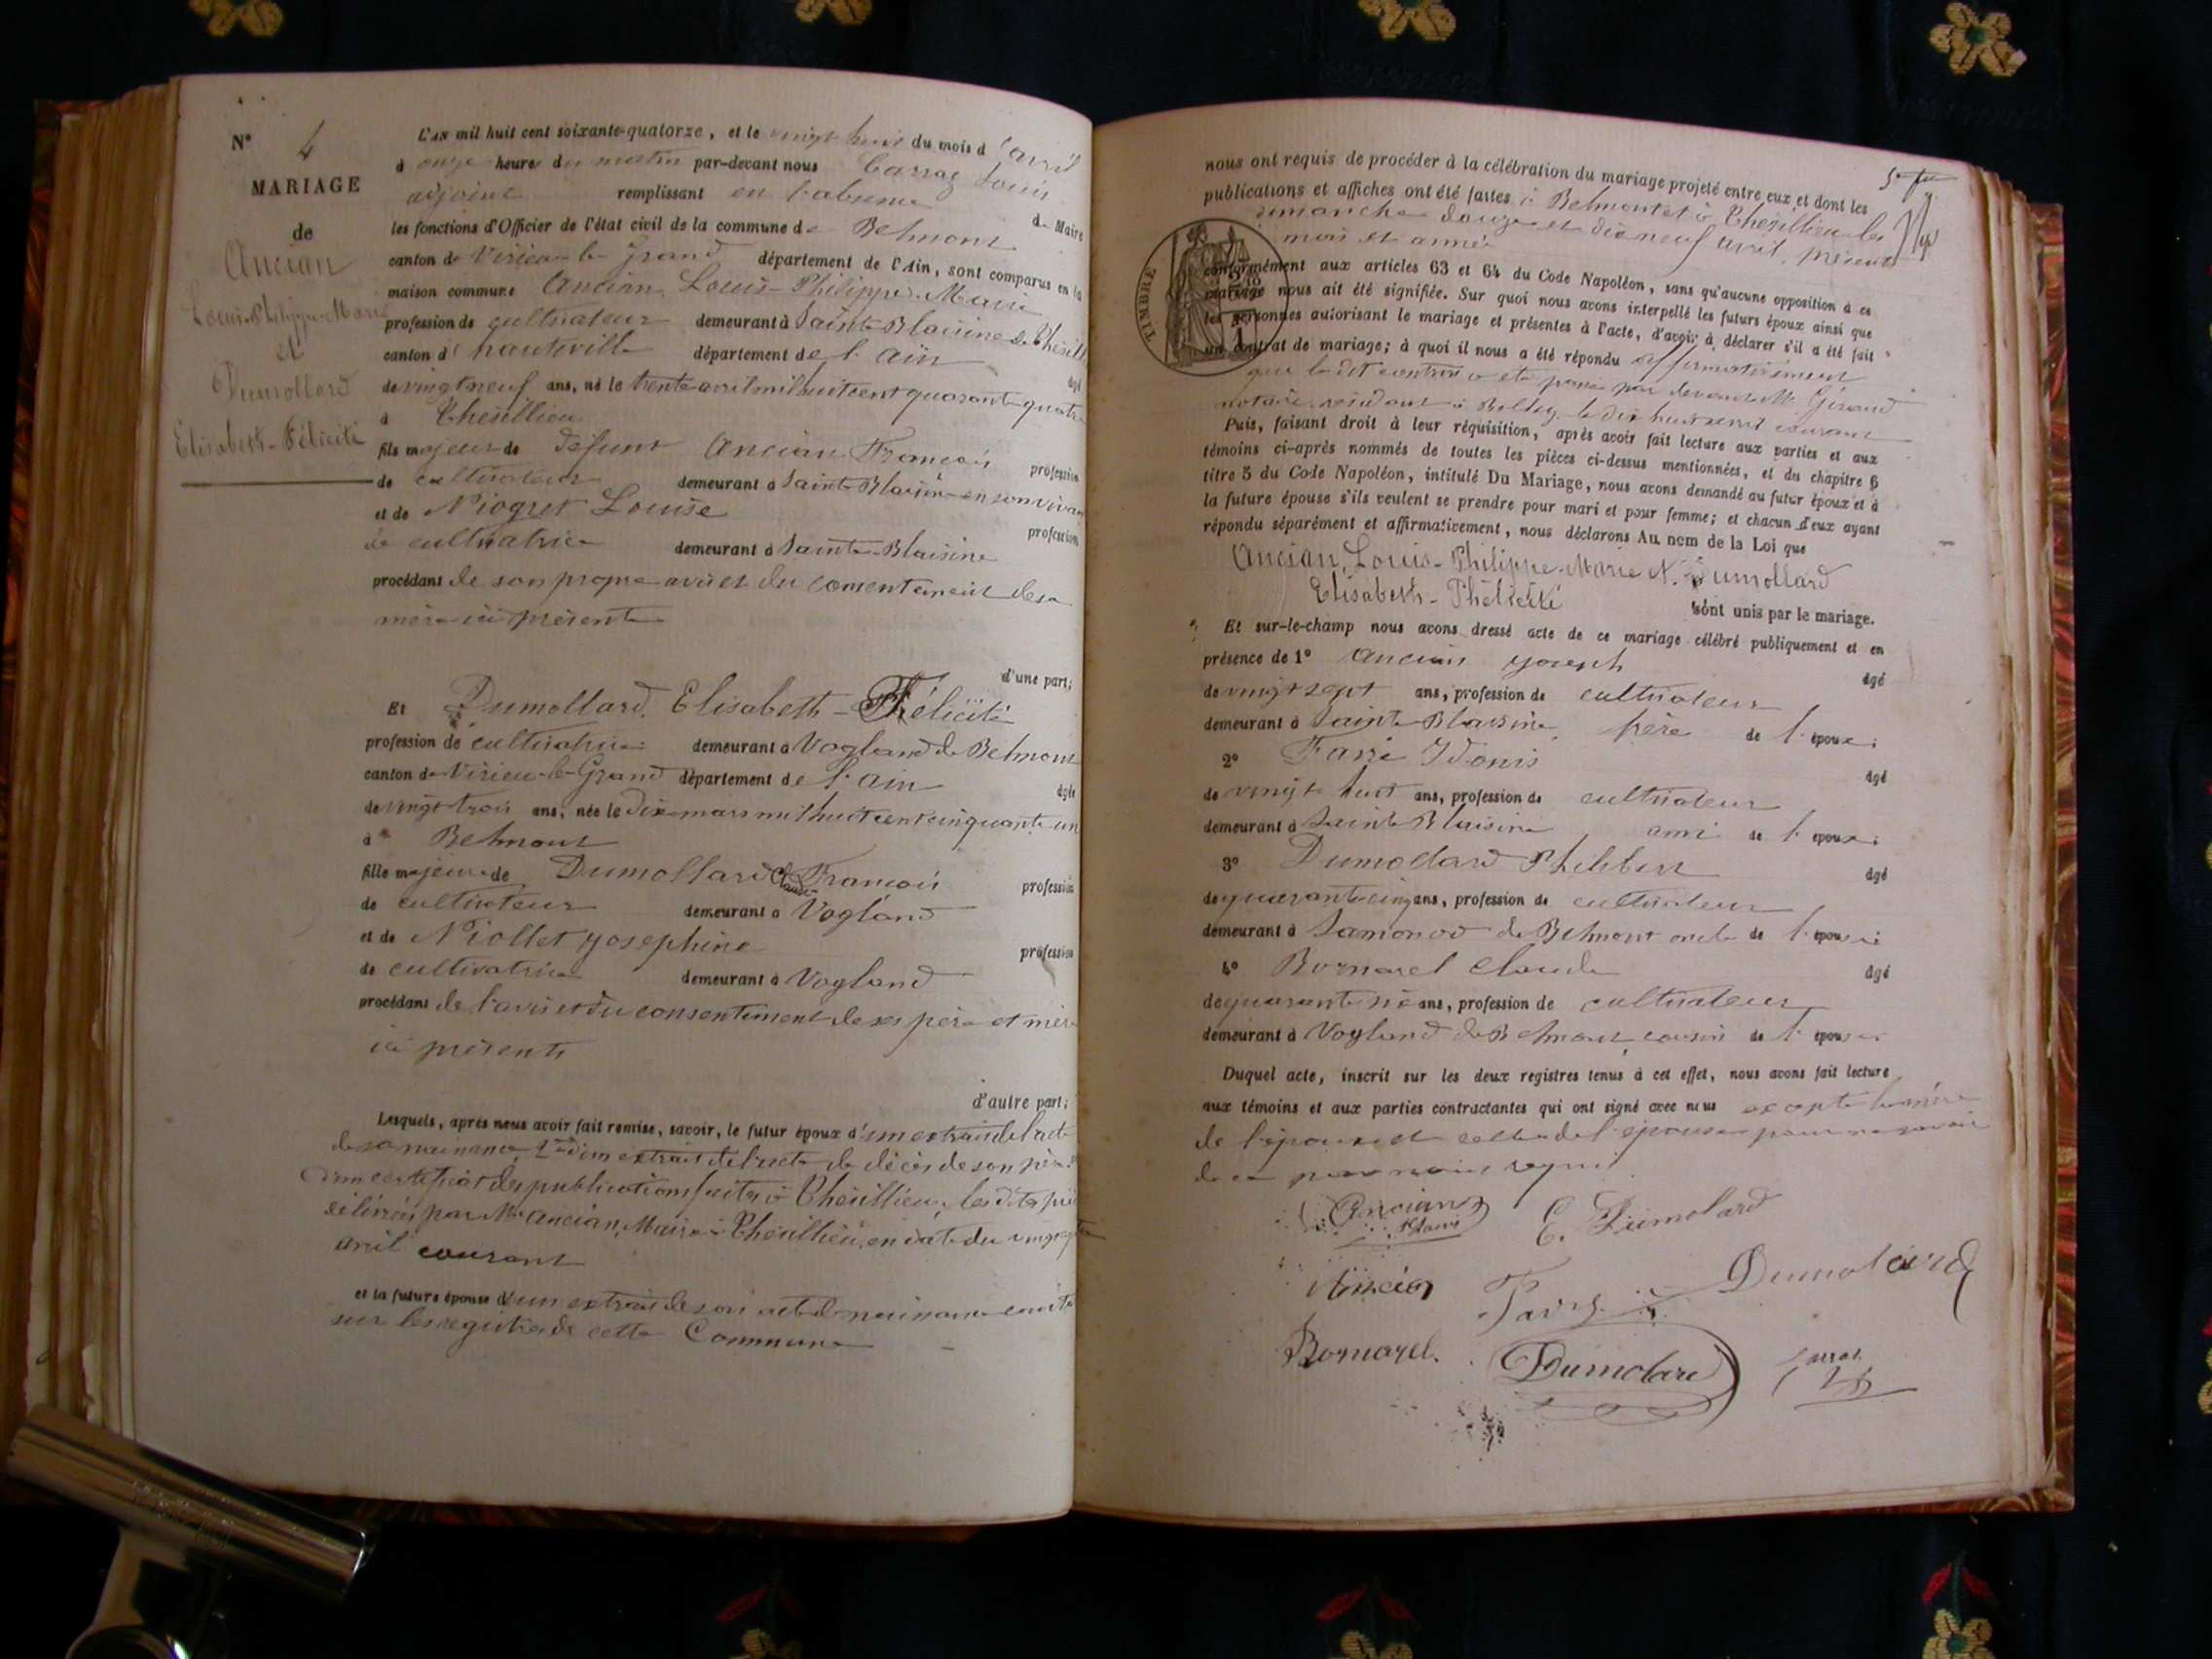 N° 4
MARIAGE
de
Ancian
Louis-Philippe-Marie
et
Dumollard
Elisabeth-Félicité
L'AN mil huit cent soixante-quatorze, et le vingt huit du mois d'avril
à onze heures du matin par-devant nous Carraz Louis
adjoint remplissant en l'absence du Maire
les fonctions d'Officier de l'état civil de la commune de Belmont
canton de Virieu-le-Grand département de l'Ain, sont comparus en la
maison commune Ancian, Louis-Philippe-Marie
profession de cultivateur demeurant à Sainte-Blaisine de
canton d' hauteville département de l'ain âgé
de vingt neuf ans, né le trente avril mil huit cent quarante quatre
à Thézillieu
fils majeur de défunt Ancian François profession
de cultivateur demeurant à Sainte Blaisine en son vivant
et de Niogret Louise profession
de cultivatrice demeurant à Sainte-Blaisine
procédant de son propre avis et du consentement de sa
mère ici présente
d'une part;
Et Dumollard, Elisabeth-Félicité
profession de cultivatrice demeurant à Vogland de Belmont
canton de Virieu-le-Grand département de l'ain âgée
de vingt trois ans, née le dix mars mil huit cent cinquante un
à Belmont
fille majeure de Dumollard Claude François profession
de cultivateur demeurant à Vogland
et de Niollet Josephine profession
de cultivatrice demeurant à Vogland
procédant de l'avis et du consentement de ses père et mère
ici présents
d'autre part;
Lesquels, après nous avoir fait remise, savoir, le futur époux d'un extrait de l'acte
de sa naissance, d'un extrait de l'acte de décès de son père
d'un certificat des publications faites à Thézillieu, les dites
délivrées par Mr Ancian, Maire à Thézillieu, en date du
avril courant
et la future épouse d'un extrait de son acte de naissance
sur les registres de cette Commune
nous ont requis de procéder à la célébration du mariage projeté entre eux et dont les
publications et affiches ont été faites à Belmont et à Thézillieu les
dimanches douze et dix neuf avril, présents
mois et année
conformément aux articles 63 et 64 du Code Napoléon, sans qu'aucune opposition à ce
mariage nous ait été signifiée. Sur quoi nous avons interpellé les futurs époux ainsi que
les personnes autorisant le mariage et présentes à l'acte, d'avoir à déclarer s'il a été fait
un contrat de mariage; à quoi il nous a été répondu affirmativement
que le dit contrat a été passé par devant Mr Girand
notaire, résidant à Belley le dix huit avril courant
TIMBRE
Puis, faisant droit à leur réquisition, après avoir fait lecture aux parties et aux
témoins ci-après nommés de toutes les pièces ci-dessus mentionnées, et du chapitre 6
titre 5 du Code Napoléon, intitulé Du Mariage, nous avons demandé au futur époux et à
la future épouse s'ils veulent se prendre pour mari et pour femme; et chacun d'eux ayant
répondu séparément et affirmativement, nous déclarons Au nom de la Loi que
Ancian, Louis-Philippe-Marie et Dumollard
Elisabeth-Phélicité sont unis par le mariage.
Et sur-le-champ nous avons dressé acte de ce mariage célébré publiquement et en
présence de 1° Ancian Joseph âgé
de vingt sept ans, profession de cultivateur
demeurant à Sainte Blaisine, frère de l'époux;
2° Favre âgé
de vingt huit ans, profession de cultivateur
demeurant à Sainte Blaisine ami de l'époux;
3° Dumollard Philibert âgé
de quarante cinq ans, profession de cultivateur
demeurant à Samonod de Belmont oncle de l'épouse;
4° Bornarel Claude âgé
de quarante six ans, profession de cultivateur
demeurant à Vogland de Belmont, cousin de l'épouse
Duquel acte, inscrit sur les deux registres tenus à cet effet, nous avons fait lecture
aux témoins et aux parties contractantes qui ont signé avec nous excepté la mère
de l'époux et celle de l'épouse pour ne savoir
de ce requis
Ancian Louis
E. Dumolard
Ancian
Favre
Dumolard
Bornarel.
Dumolard